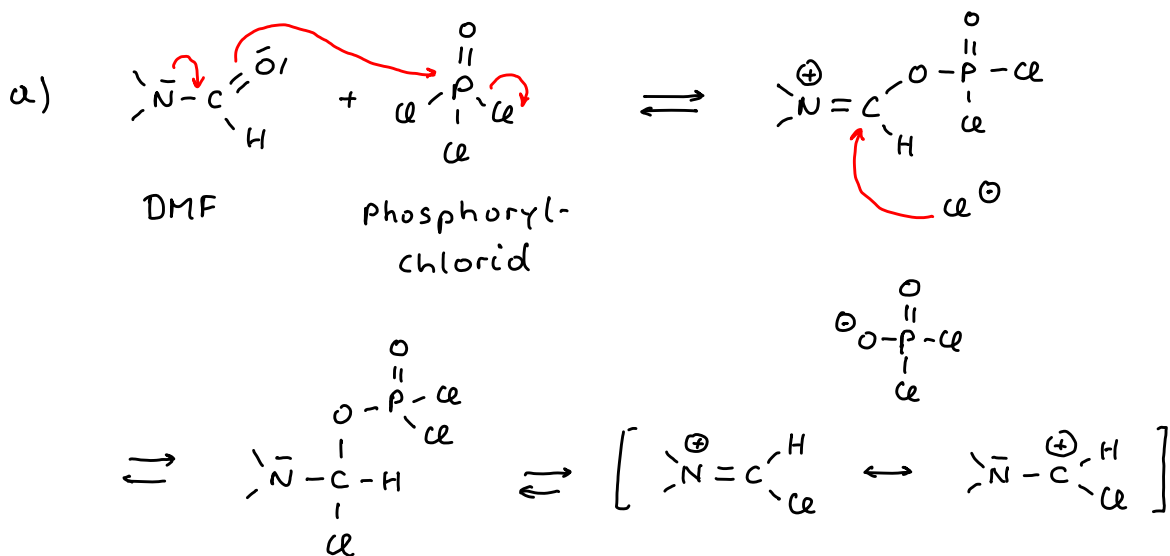 a)
N – C = O
H
+
O
Cl P Cl
Cl
⇌
O
O – P – Cl
⊕ N = C Cl
H
Cl ⊖
DMF
Phosphoryl-
chlorid
O
⊖ O – P – Cl
Cl
⇌
O
O – P – Cl
Cl
N – C – H
Cl
⇌
[ ⊕ N = C H Cl ↔ N – C ⊕ H Cl ]